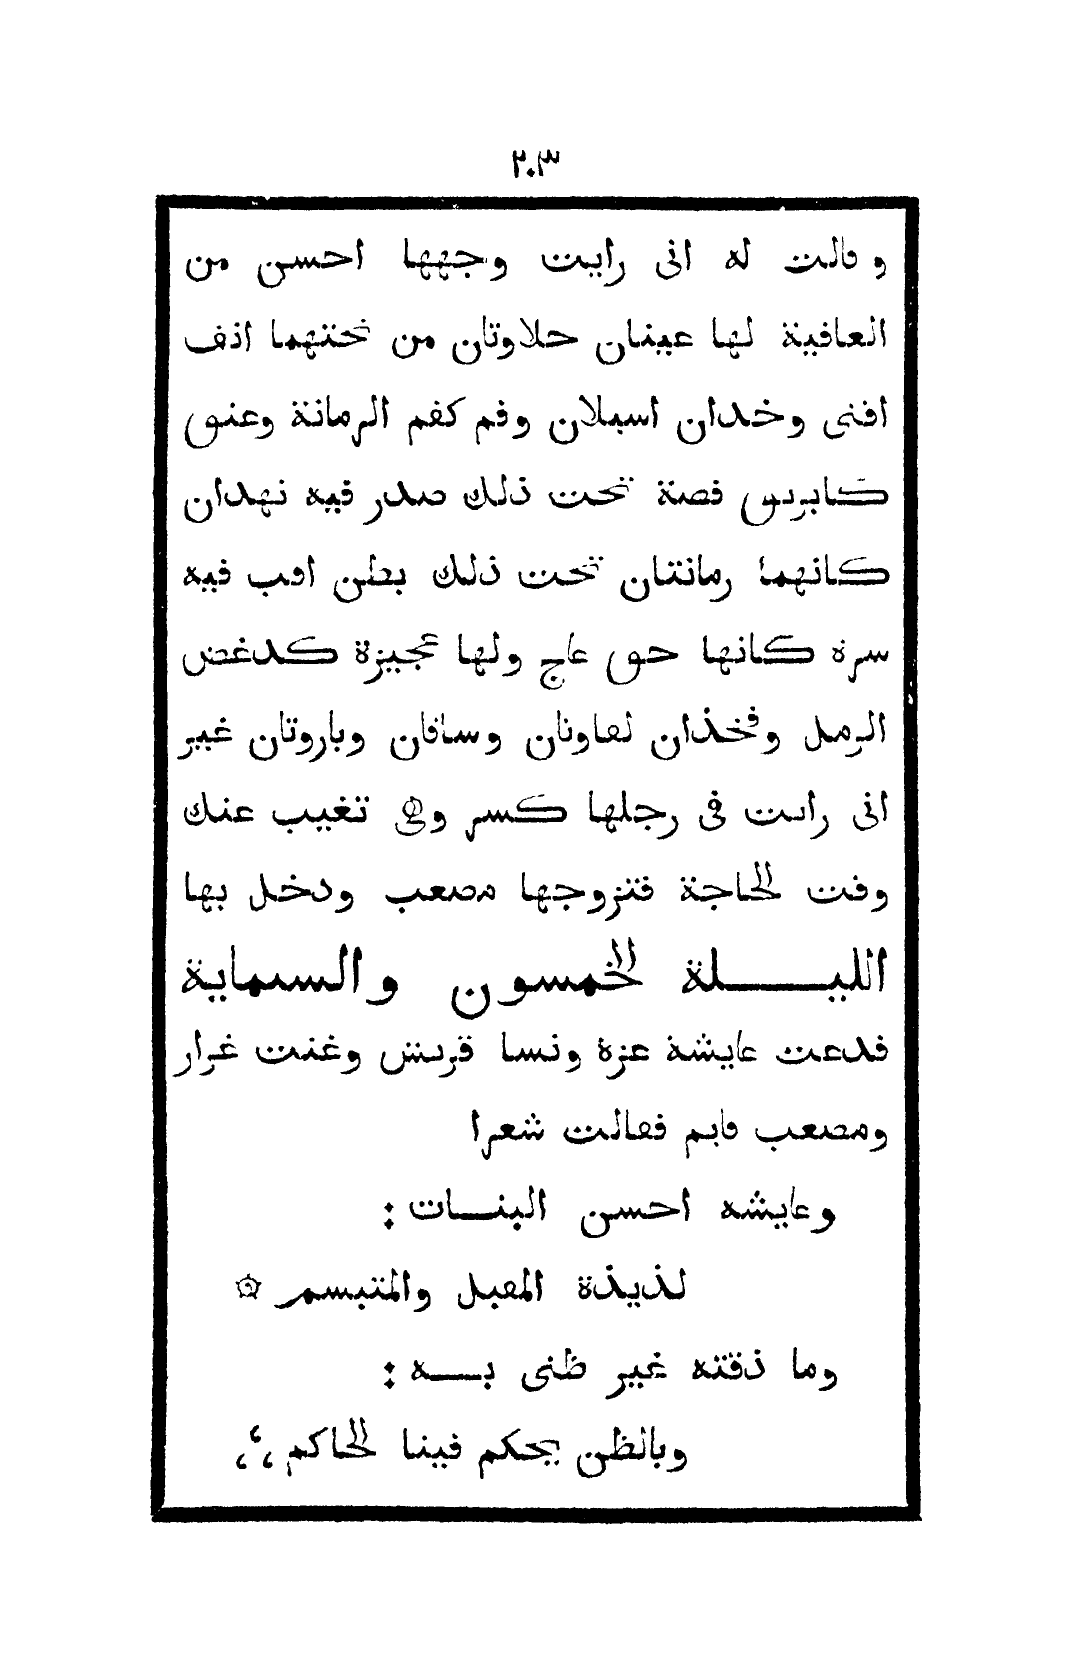 ٢٠٣
وقالت له انى رايت وجهها احسن من
العافية لها عينان حلاوتان من تحتهما انف
اقنى وخدان اسيلان وفم كفم الرمانة وعنق
كابريق فضة تحت ذلك صدر فيه نهدان
كانهما رمانتان تحت ذلك بطن اقب فيه
سرة كانها حق عاج ولها عجيزة كدغص
الرمل وفخذان لفاوتان وساقان وباروتان غير
انى رايت فى رجلها كسر وهى تغيب عنك
وقت الحاجة فتزوجها مصعب ودخل بها
الليلة الخمسون والستماية
فدعت عايشة عزة ونسا قريش وغنت غرار
ومصعب قايم فقالت شعرا
وعايشه احسن البنات :
لذيذة المقبل والمتبسم ۞
وما ذقته غير ظنى به :
وبالظن يحكم فينا الحاكم ،؛،